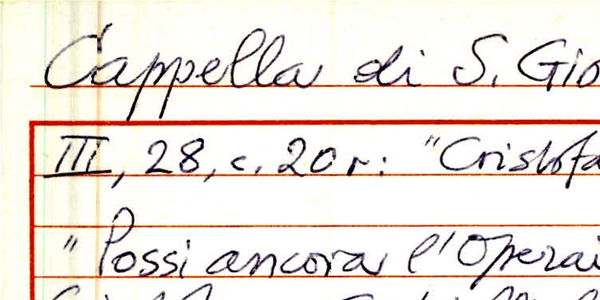 Cappella di S. Gio
III, 28, c. 20 r: "Cristofa
" Possi ancora l'Operai